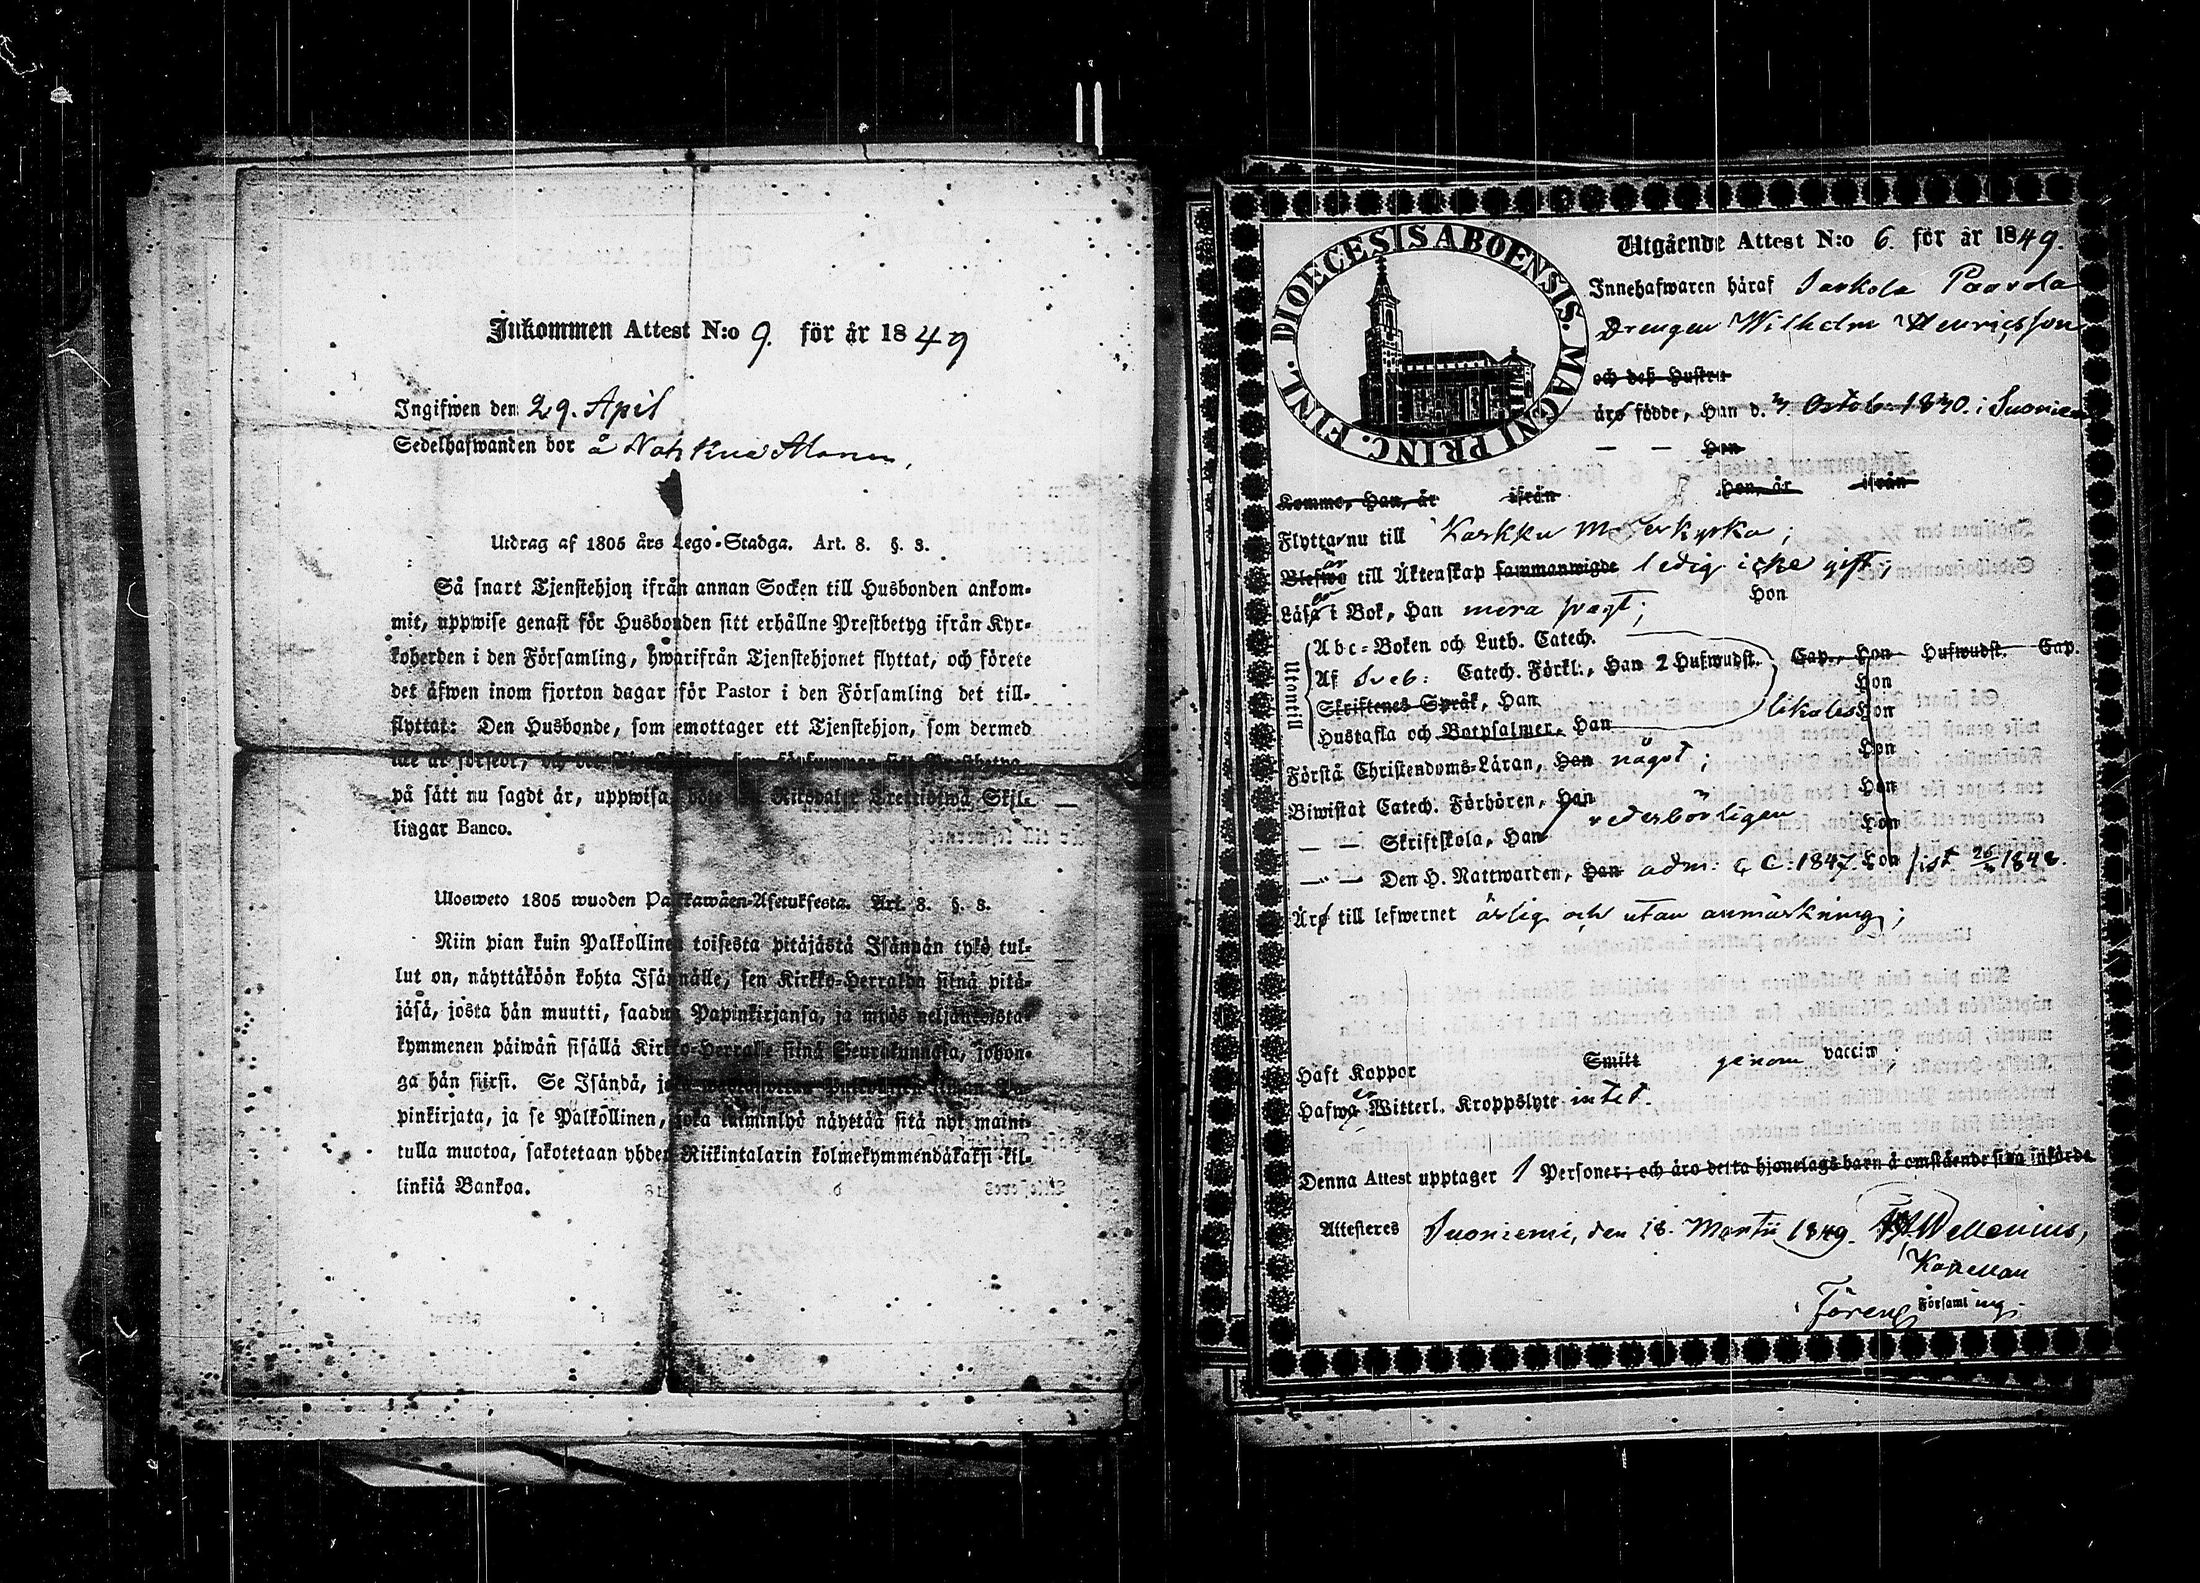 Inkommen Attest N:o 9. för år 1849
Ingifwen den 29. April
Sedelhafwanden bor å
Utdrag af 1805 års Lego-Stadga. Art. 8. §. 3.
Så snart Tjenstehjon ifrån annan Socken till Husbonden ankom-
mit, uppwise genast för Husbonden sitt erhållne Prestbetyg ifrån Kyr-
koherden i den Församling, hwarifrån Tjenstehjonet flyttat, och förete
det äfwen inom fjorton dagar för Pastor i den Församling det till-
flyttat: Den Husbonde, som emottager ett Tjenstehjon, som dermed
på sätt nu sagdt är, uppwisa, böte en Riksdaler Trettiotwå Skil-
lingar Banco.
Ulosweto 1805 wuoden Palkawäen-Asetuksesta. Art. 8. §. 3.
Niin pian kuin Palkollinen toisesta pitäjästä Isännän tykö tul-
lut on, näyttäköön kohta Isännälle, sen Kirkko-Herralda siinä pitä-
jäsä, josta hän muutti, saadun Papinkirjansa, ja myös neljänkoista-
kymmenen päiwän sisällä Kirkko-Herralle siinä Seurakunnasa, johon-
ga hän siirsi. Se Isändä, joka
pinkirjata, ja se Palkollinen, joka laiminlyö näyttää sitä nyt maini-
tulla muotoa, sakotetaan yhden Riikintalarin kolmekymmendäkaksi kil-
linkiä Bankoa.
DIOECESIS ABOENSIS. MAGNI PRINC. FINL.
Utgående Attest N:o 6. för år 1849.
Innehafwaren häraf Sarkola Paavola
Drengen Wilhelm Henricsson
och deß Hustru
äro födde, Han d. Octob. 1830. i Suoniemi
— — Hon
Komme, Han, år ifrån Hon, år ifrån
Flyttar nu till Karkku Moderkyrka;
Blefwo är till Äktenskap sammanwigde ledig icke gift;
Läsa i Bok, Han mera svagt; Hon
Utantill
Abc-Boken och Luth. Catech.
Af Sveb: Catech. Förkl., Han 2 Hufwudst. Cap., Hon Hufwudst. Cap.
Hon
Skriftenes Språk, Han likaledes Hon
Hustafla och Botpsalmer, Han
Förstå Christendoms-Läran, Han något; Hon
Biwistat Catech. Förhören, Han Hon
— — Skriftskola, Han vederbörligen Hon
— — Den H. Nattwarden, Han adm: C: 1847. Hon sist 1848.
Äro till lefwernet ärlig och utan anmärkning;
Haft Koppor Smitt genom vaccin,
Hafwa Witterl. Kroppslyte intet.
Denna Attest upptager 1 Personer; och äro detta hjonelags barn å omstående sida införde.
Attesteres Suoniemi, den 18. Martii 1849. Wellenius,
Kapellan
Församling.